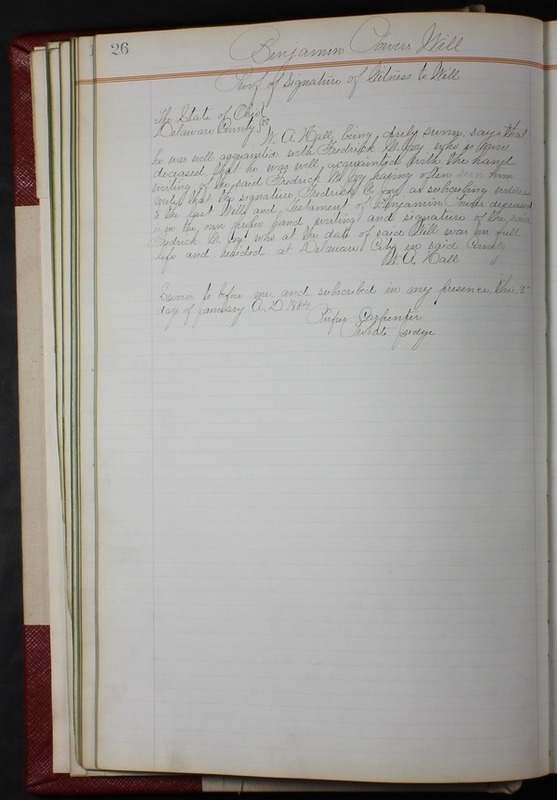 26
Benjamin Powers Will
Proof of Signature of Witness to Will
The State of Ohio
Delaware County SS
W. A. Hall, being duly sworn, says that
he was well acquainted with Fredrick W. who is now
deceased, that he was well acquainted with the hand
writing of the said Fredrick W. having often seen him
write that the signature, Fredrick W. as subscribing witness
to the last Will and Testament of Benjamin Powers deceased
is in the own proper hand writing and signature of the said
Fredrick W. who at the date of said Will was in full
life and resided at Delaware City in said County
W. A. Hall
Sworn to before me and subscribed in my presence this 15
day of January A.D. 1884
Rufus Carpenter
Probate Judge